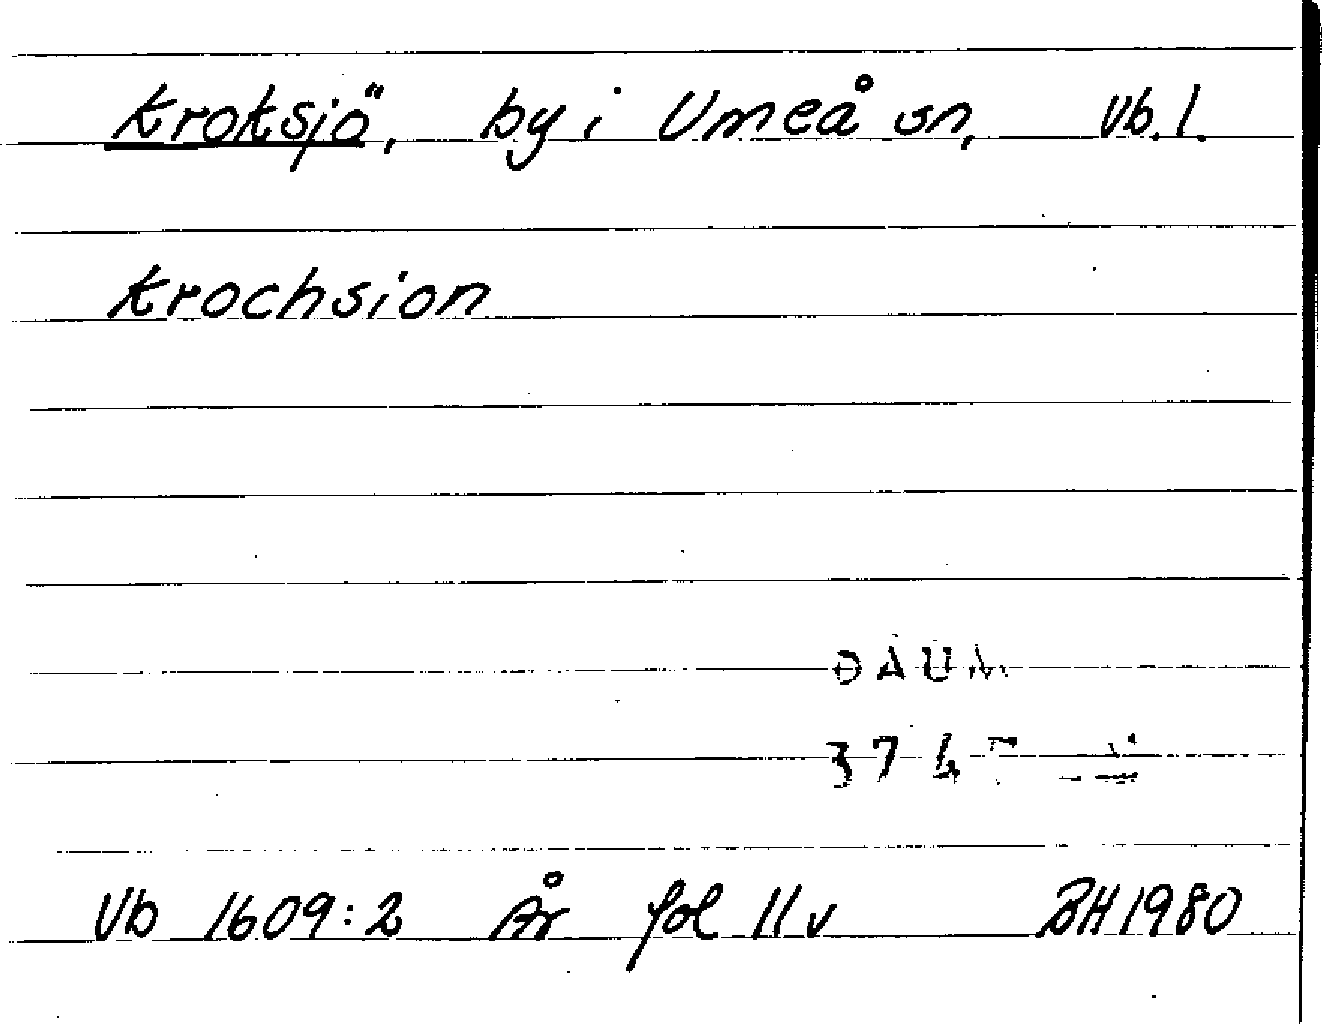 Kroksjö, by i Umeå sn, Vb. l.
Krochsion
DAUM
Vb 1609:2 År fol 11v BH 1980